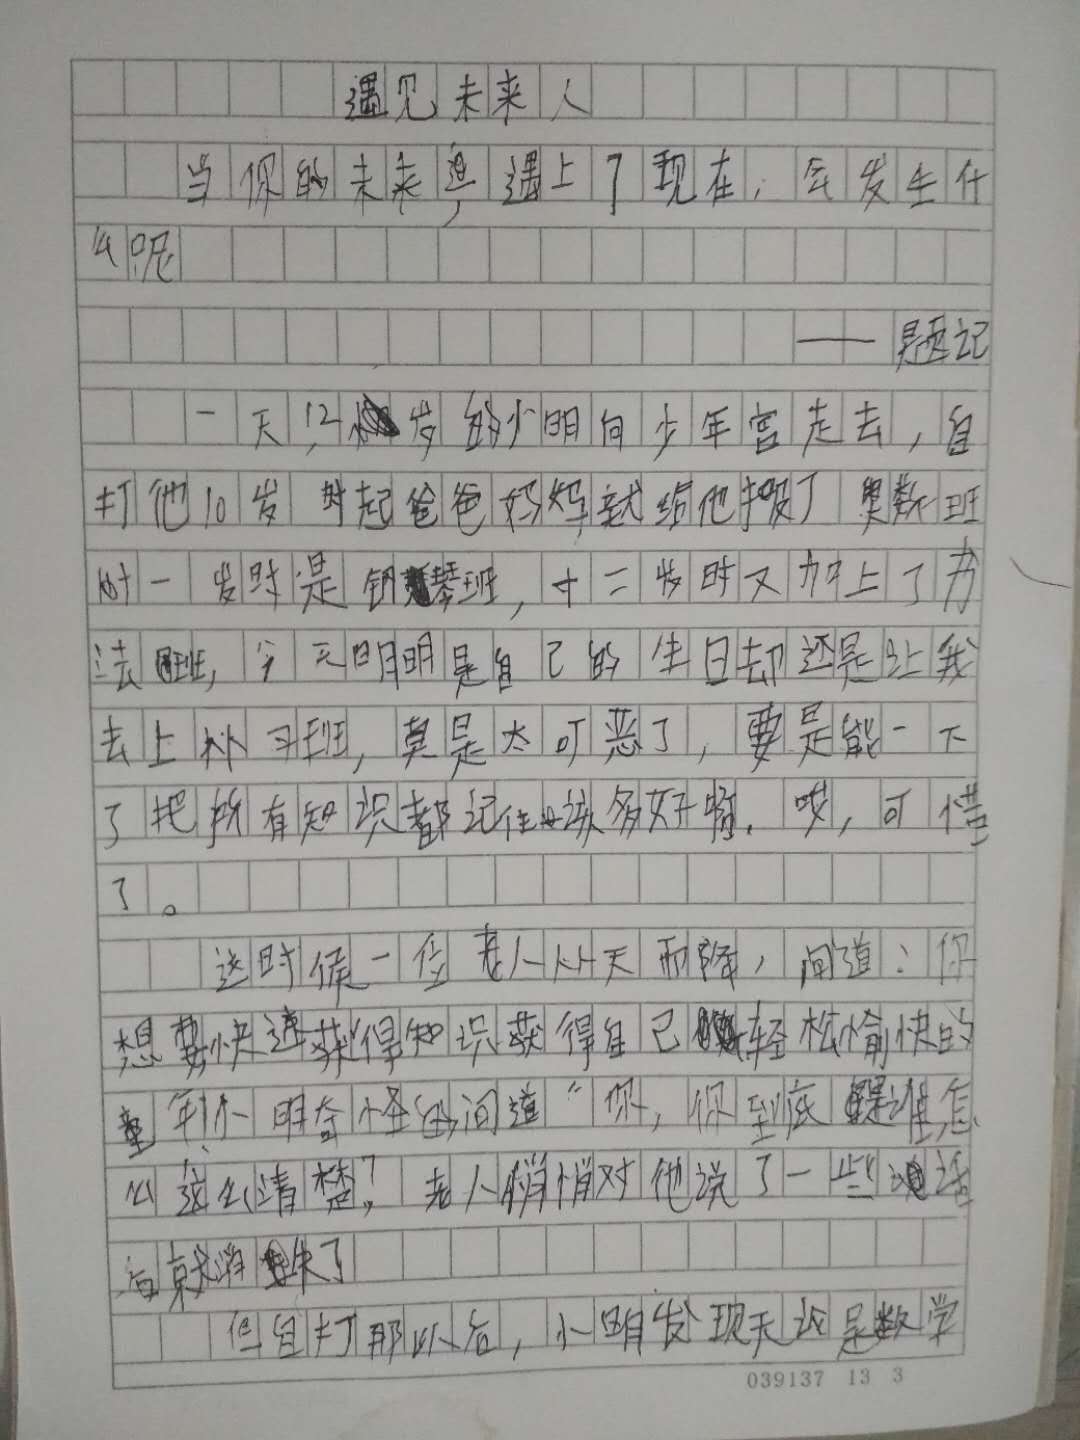 遇见未来人
当你的未来遇上了现在,会发生什
么呢
——题记
一天,12岁的小明向少年宫走去,自
打他10岁时起爸爸妈妈就给他报了奥数班
时一岁时是钢琴班,十二岁时又加上了书
法班,今天明明是自己的生日却还是让我
去上补习班,真是太可恶了,要是能一下
了把所有知识都记住该多好啊.哎,可惜
了。
这时候一位老人从天而降,问道:你
想要快速获得知识获得自己轻松愉快的
童年小明奇怪的问道“你,你到底是谁,怎
么这么清楚?老人悄悄对他说了一些话
后就消失了
但自打那以后,小明发现无论是数学
039137 13 3